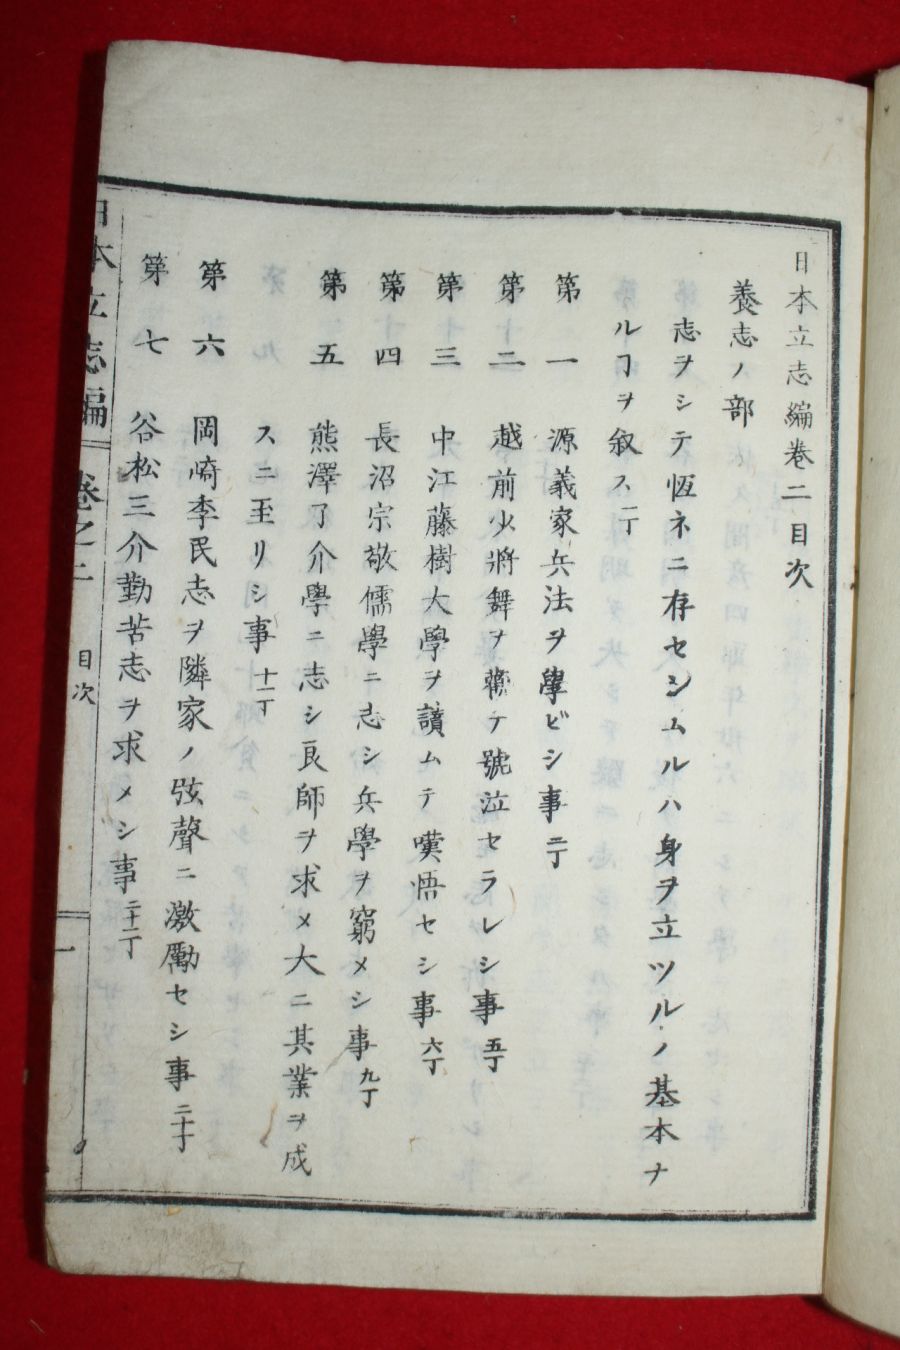 日本立志編卷二目次
養志ノ部
志ヲシテ恆ネニ存セシムルハ身ヲ立ツルノ基本ナ
ルヿヲ叙ス 一丁
第一 源義家兵法ヲ學ビシ事 二丁
第二 越前少將舞ヲ觀テ號泣セラレシ事 五丁
第三 中江藤樹大學ヲ讀ムテ嘆悟セシ事 六丁
第四 長沼宗敬儒學ニ志シ兵學ヲ窮メシ事 九丁
第五 熊澤了介學ニ志シ良師ヲ求メ大ニ其業ヲ成
スニ至リシ事 十一丁
第六 岡崎李民志ヲ隣家ノ弦聲ニ激勵セシ事 二十丁
第七 谷松三介勤苦志ヲ求メシ事 二十二丁
日本立志編 卷之二 目次 一